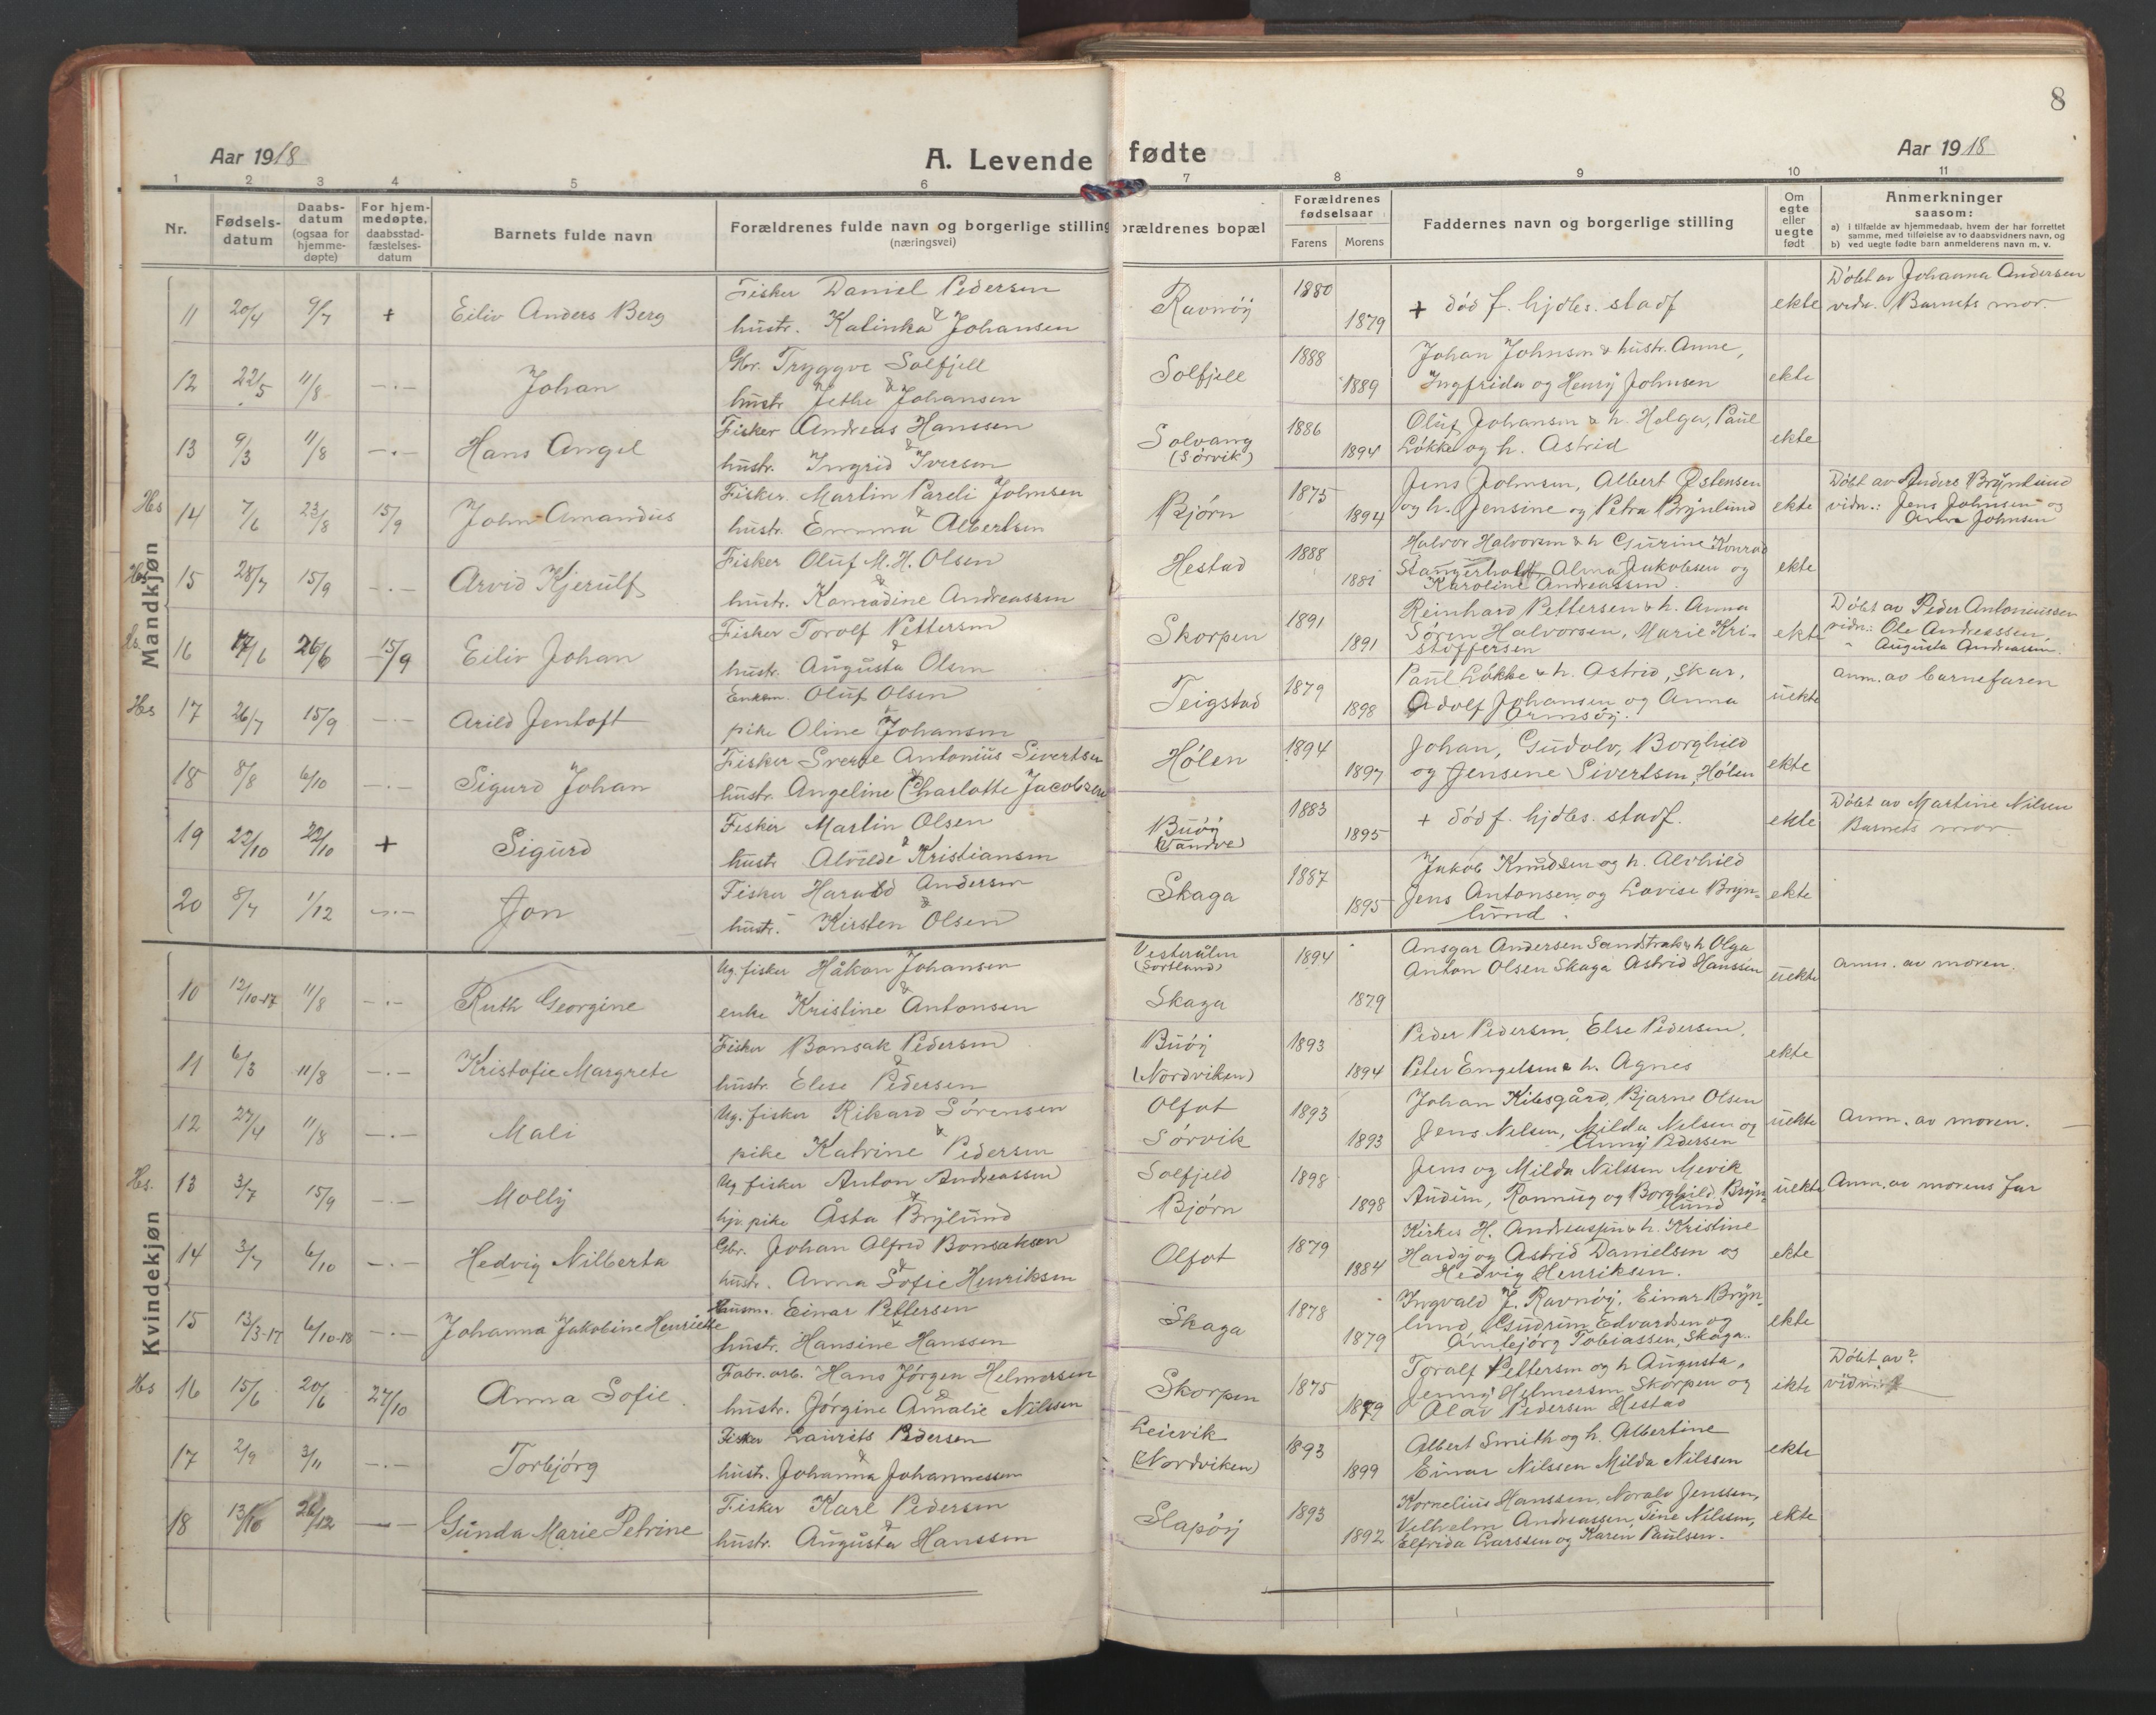 8
Aar 1918
A. Levende fødte
Aar 1918
1 2 3 4 5 6 7 8 9 10 11
Nr.
Fødsels-
datum
Daabs-
datum
(ogsaa for
hjemme-
døpte)
For hjem-
medøpte,
daabsstad-
fæstelses-
datum
Barnets fulde navn
Forældrenes fulde navn og borgerlige stilling
(næringsvei)
orældrenes bopæl
Forældrenes
fødselsaar
Farens Morens
Faddernes navn og borgerlige stilling
Om
egte
eller
uegte
født
Anmerkninger
saasom:
a) i tilfælde av hjemmedaab, hvem der har forrettet
samme, med tilføielse av to daabsvidners navn, og
b) ved uegte fødte barn anmelderens navn m. v.
Mandkjøn
11 20/4 9/7 + Eiliv Anders Berg
Fisker Daniel Pedersen
&
hustr. Katinka Johansen
Ravnøy 1880 1879
+ død f. hjdbs. stadf
ekte
Døbt av Johanna Andersen
vidn. Barnets mor
12 22/5 11/8 -·- Johan
Gbr. Tryggve Solfjell
&
hustr Jethe Johansen
Solfjell 1888 1889
Johan Johnsen & hustr. Anne,
Ingfrida og Henry Johnsen
ekte
13 9/3 11/8 -·- Hans Angel
Fisker Andreas Hanssen
&
hustr. Ingrid Iversen
Solvang
(Sørvik)
1886 1894
Oluf Johansen & h. Helga, Paul
Løkke og h. Astrid
ekte
Hs 14 7/6 23/8 15/9 John Amandus
Fisker. Martin Pareli Johnsen
&
hustr. Emma Albertsen
Bjørn 1875 1894
Jens Johnsen, Albert Østensen
og h. Jensine og Petra Brynlund
ekte
Døbt av Anders Brynlund
vidn.: Jens Johnsen og
Anna Johnsen
Hs 15 28/7 15/9 -·- Arvid Kjerulf
Fisker Oluf M. H. Olsen
&
hustr. Konradine Andreassen
Hestad 1888 1881
Halvor Halvorsen & h Gurine Konrad
Stangerholt Alma Jakobsen og
Karoline Andreassen.
ekte
Hs. 16 17/6 26/6 15/9 Eiliv Johan
Fisker Torolf Pettersen
&
hustr. Augusta Olsen
Skorpen 1891 1891
Reinhard Pettersen & h. Anna
Søren Halvorsen, Marie Kri-
stoffersen
ekte
Døbt av Peder Antoniussen
vidn: Ole Andreassen,
" Augusta Andreassen.
Hs 17 26/7 15/9 -·- Arild Jentoft
Enkem. Oluf Olsen
&
pike Oline Johansen
Teigstad 1879 1898
Paul Løkke & h. Astrid, Skar,
Adolf Johansen og Anna
Ormsøy.
uekte
anm. av barnefaren
18 8/8 6/10 -·- Sigurd Johan
Fisker Sverre Antonius Sivertsen
&
hustr. Angeline Charlotte Jacobsen
Hølen 1894 1897
Johan, Gudolv, Borghild
og Jensine Sivertsen, Hølen
ekte
19 22/10 22/10 + Sigurd
Fisker Martin Olsen
&
hustr Alvilde Kristiansen
Buøy
(Vandve)
1883 1895
+ død f. hjdbs. stadf.
ekte
Døbt av Martine Nilsen
Barnets mor.
20 8/7 1/12 -·- Jon
Fisker Harald Andersen
&
hustr. Kirsten Olsen
Skaga 1887 1895
Jakob Knudsen og h. Alvhild
Jens Antonsen og Lovise Bryn-
lund.
ekte
Kvindekjøn
10 12/10-17 11/8 -·- Ruth Georgine
Ug. fisker Håkon Johansen
&
enke Kristine Antonsen
Vesterålen
(Sortland)
Skaga
1894 1879
Ansgar Andersen Sandstrak & h Olga
Anton Olsen Skaga Astrid Hanssen
uekte
anm. av moren.
11 6/3 11/8 -·- Kristofie Margrete
Fisker Bonsak Pedersen
&
hustr. Elise Pedersen
Buøy
(Nordviken)
1893 1894
Peder Pedersen, Else Pedersen,
Peter Engelsen & h. Agnes
ekte
12 27/4 11/8 -·- Mali
Ug. fisker Rikard Sørensen
&
pike Katrine Pedersen
Olfot
Sørvik
1893 1893
Johan Kilesgård, Bjarne Olsen
Jens Nelsen, Milda Nelsen og
Anny Pedersen
uekte
Anm. av moren.
Hs. 13 3/7 15/9 -·- Molly
Ug fisker Anton Andreassen
&
hj. pike Åsta Brylund
Solfjeld
Bjørn
1898 1898
Jens og Milda Nilssen Mevik
Audun, Rannug og Borghild Bryn-
lund
uekte
Anm. av morens far
14 3/7 6/10 -·- Hedvig Nilberta
Gbr. Johan Alfred Bonsaksen
&
hustr. Anna Sofie Henriksen
Olfot 1879 1884
Kirkes H. Andreassen & h. Kristine
Hardy og Astrid Danielsen og
Hedvig Henriksen.
ekte
15 13/3-17 6/10-18 -·- Johanna Jakobine Henriette
Husm. Einar Pettersen
&
hustr. Hansine Hanssen
Skaga 1878 1879
Ingvald J. Ravnøy, Einar Bryn-
lund Gudrun Edvardsen og
Annbjørg Tobiassen, Skaga.
ekte
Hs 16 15/6 20/6 27/10 Anna Sofie
Fabr. arb. Hans Jørgen Helmersen
&
hustr. Jørgine Amalie Nilssen
Skorpen 1875 1879
Toralf Pettersen og h Augusta,
Jenny Helmersen Skorpen og
Olav Pedersen Hestad
ekte
Døbt av?
vidn:
17 2/9 3/11 -·- Torbjørg
Fisker Laurits Pedersen
&
hustr. Johanna Johannessen
Leievik
(Nordviken)
1893 1899
Albert Smith og h. Albertine
Einar Nilssen Milda Nilssen
ekte
18 13/10 26/12 -·- Gunda Marie Petrine
Fisker Karl Pedersen
&
hustr. Augusta Hanssen
Slapøy 1893 1892
Kornelius Hanssen, Noralv Jenssen,
Vilhelm Andreassen, Tine Nilssen,
Elfrida Larssen og Karen Paulsen.
ekte